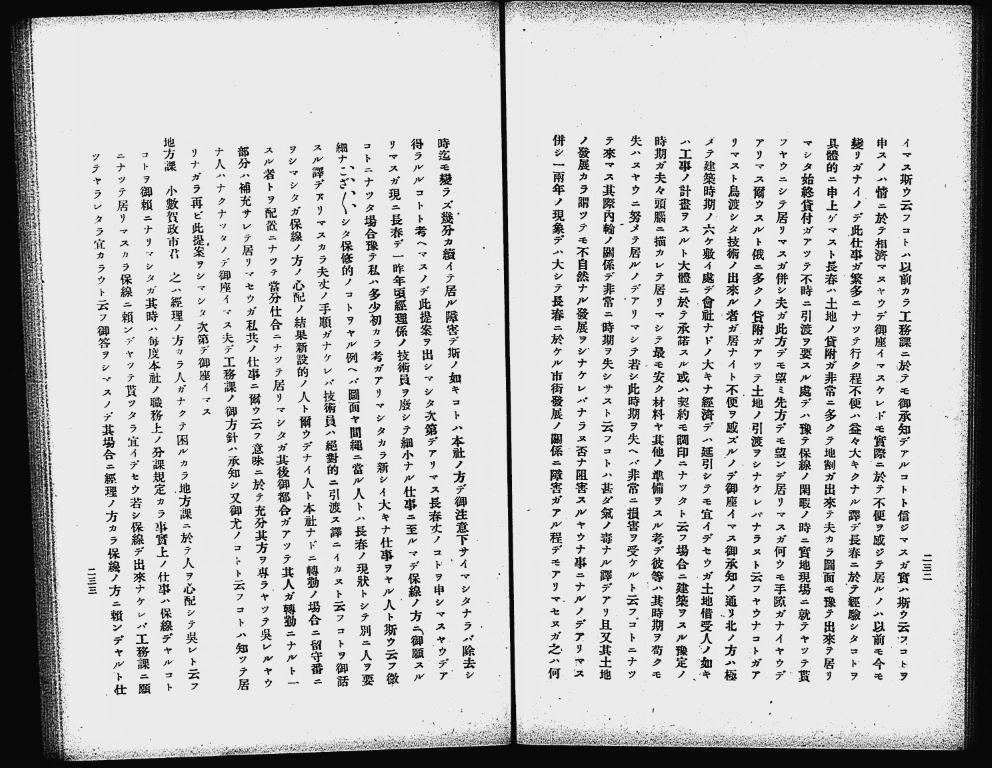 イマス斯ウ云フコトハ以前カラ工務課ニ於テ御承知デアルコトト信ジマスガ實ハ斯ウ云フコトヲ
申スノハ情ニ於テ相濟マヌヤウデ御座イマスケレドモ實際ニ於テ不便ヲ感ジテ居ルノハ以前モ今モ
變リガナイノデ此仕事ガ繁多ニナツテ行ク程不便ハ益々大キクナル譯デ長春ニ於テ經驗シタコトヲ
具體的ニ申上ゲマスト長春ハ土地ノ貸附ガ非常ニ多クテ地割ガ出來テ夫カラ圖面モ豫テ出來テ居リ
マシタ始終貸付ガアツテ不時ニ引渡ヲ要スル處デハ豫テ保線ノ閑暇ノ時ニ實地現場ニ就テヤツテ貰
フヤウニシテ居リマスガ併シ夫ガ此方デモ望ミ先方デモ望ンデ居リマスガ何ウモ手隙ガナイヤウデ
アリマス爾ウスルト俄ニ多クノ貸附ガアツテ土地ノ引渡ヲシナケレバナラヌト云フヤウナコトガア
リマスト鳥渡シタ技術ノ出來ル者ガ居ナイト不便ヲ感ズルノデ御座イマス御承知ノ通リ北ノ方ハ極
メテ建築時期ノ六ケ敷イ處デ會社ナドノ大キナ經濟デハ延引シテモ宜イデセウガ土地借受人ノ如キ
ハ工事ノ計畫ヲスルト大體ニ於テ承諾スル或ハ契約モ調印ニナツタト云フ場合ニ建築ヲスル豫定ノ
時期ガ夫々頭腦ニ描カレテ居リマシテ最モ安イ材料ヤ其他ノ準備ヲスル考デ彼等ハ其時期ヲ苟クモ
失ハヌヤウニ努メテ居ルノデアリマシテ若シ此時期ヲ失ヘバ非常ニ損害ヲ受ケルト云フコトニナツ
テ來マス其際内輪ノ關係デ非常ニ時期ヲ失シサスト云フコトハ甚ダ氣ノ毒ナル譯デアリ且又其土地
ノ發展カラ謂ツテモ不自然ナル發展ヲシナケレバナラヌ否ナ阻害スルヤウナ事ニナルノデアリマス
併シ一兩年ノ現象デハ大シテ長春ニ於ケル市街發展ノ關係ニ障害ガアル程デモアリマセヌガ之ハ何
時迄モ變ラズ幾分カ續イテ居ル障害デ斯ノ如キコトハ本社ノ方デ御注意下サイマシタナラバ除去シ
得ラルルコトト考ヘマスノデ此提案ヲ出シマシタ次第デアリマス長春丈ノコトヲ申シマスヤウデア
リマスガ現ニ長春デ一昨年頃經理係ノ技術員ヲ廢シテ細小ナル仕事ニ至ルマデ保線ノ方ニ御願スル
コトニナツタ場合豫テ私ハ多少初カラ考ガアリマシタカラ新シイ大キナ仕事ヲヤル人ト斯ウ云フ微
細ナこざ〱シタ保修的ノコトヲヤル例ヘバ圖面ヤ間繩ニ當ル人トハ長春ノ現狀トシテ別ニ人ヲ要
スル譯デアリマスカラ夫丈ノ手順ガナケレバ技術員ハ絕對的ニ引渡ス譯ニイカヌト云フコトヲ御話
ヲシマシタガ保線ノ方ノ心配ノ結果新設的ノ人ト爾ウデナイ人ト本社ナドニ轉勤ノ場合ニ留守番ニ
スル者トヲ配置ニナツテ當分仕合ニナツテ居リマシタガ其後御都合ガアツテ其人ガ轉勤ニナルト一
部分ハ補充サレテ居リマセウガ私共ノ仕事ニ爾ウ云フ意味ニ於テ充分其方ヲ專ラヤツテ吳レルヤウ
ナ人ハナクナツタノデ御座イマス夫デ工務課ノ御方針ハ承知シ又御尤ノコトト云フコトハ知ツテ居
リナガラ再ビ此提案ヲシマシタ次第デ御座イマス
地方課　小數賀政市君　之ハ經理ノ方カラ人ガナクテ困ルカラ地方課ニ於テ人ヲ心配シテ吳レト云フ
コトヲ御賴ニナリマシタガ其時ハ每度本社ノ職務上ノ分課規定カラ事實上ノ仕事ハ保線デヤルコト
ニナツテ居リマスカラ保線ニ賴ンデヤツテ貰ヲタラ宜イデセウ若シ保線デ出來ナケレバ工務課ニ願
ツテヤラレタラ宜カラウト云フ御答ヲシマスノデ其場合ニ經理ノ方カラ保線ノ方ニ賴ンデヤルト仕